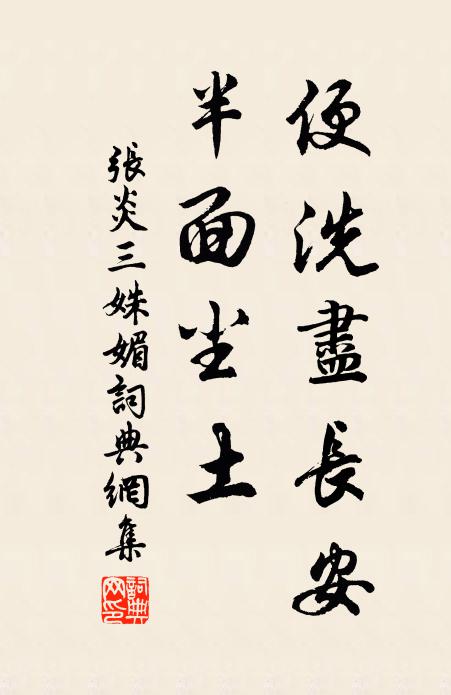 便洗盡長安
半面尘土
張炎三姝媚詞典網集
詞典网印